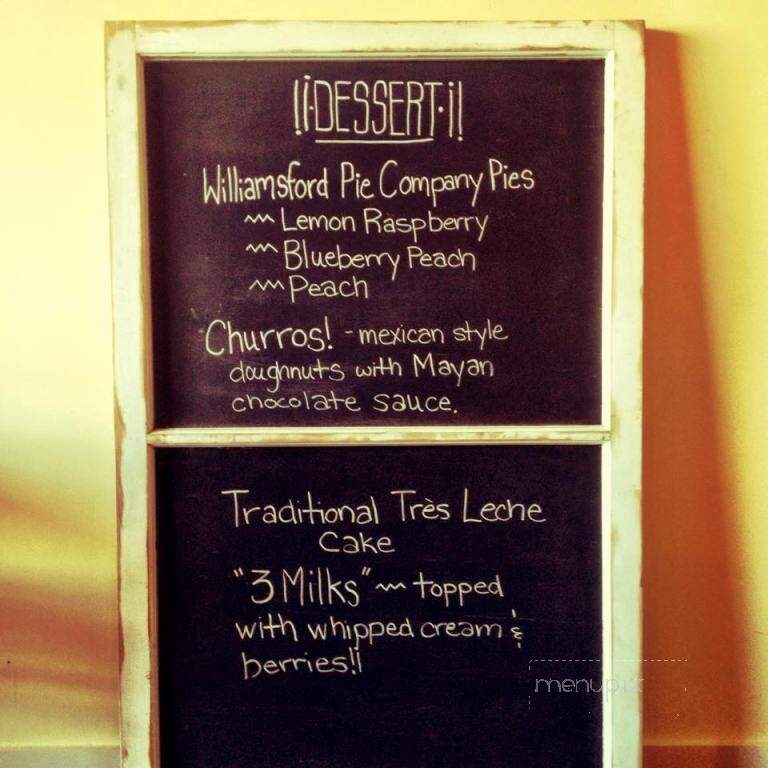 !¡·DESSERT·¡!
Williamsford Pie Company Pies
~ Lemon Raspberry
~ Blueberry Peach
~ Peach
Churros! - mexican style
doughnuts with Mayan
chocolate sauce.
Traditional Très Leche
Cake
"3 Milks" ~ topped
with whipped cream &
berries!¡
menupix